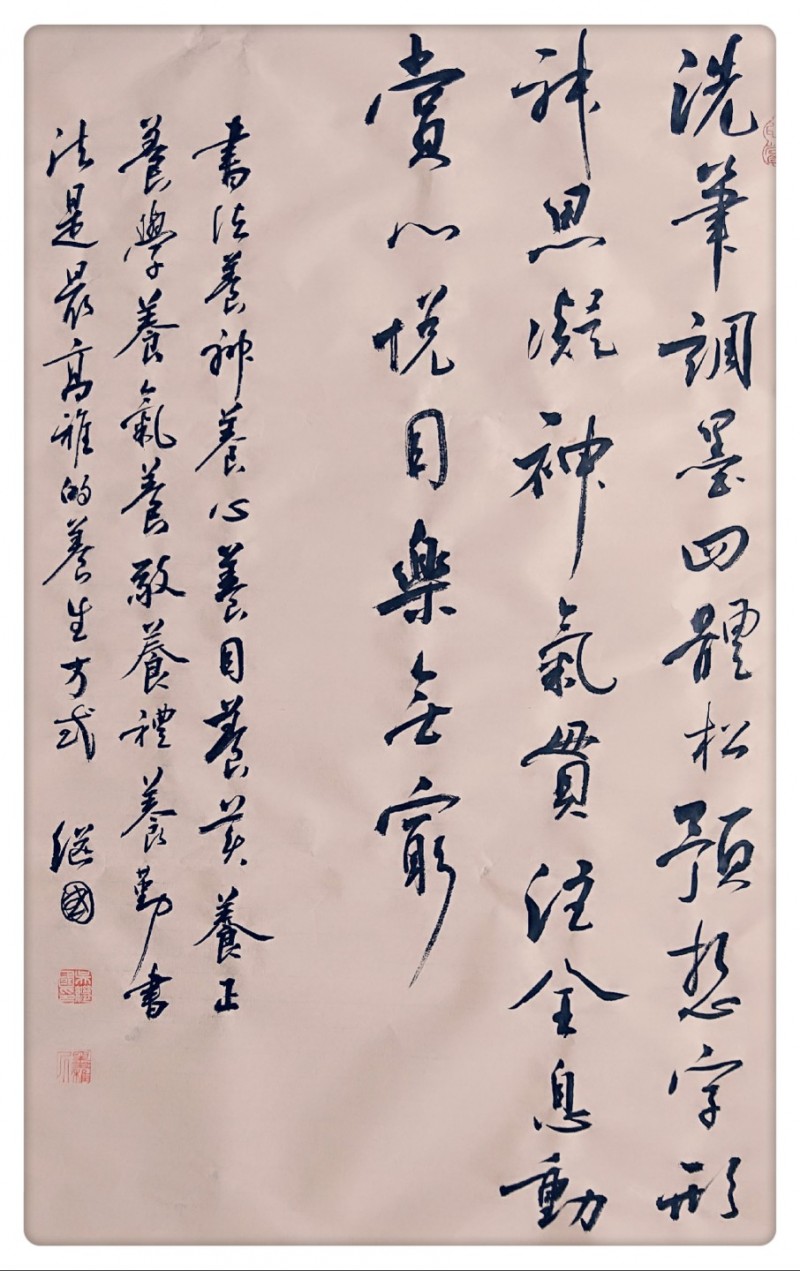 洗筆調墨四體松預想字形
神思凝神氣貫注全息動
賞心悅目樂無窮
書法養神養心養目養美養正
養學養氣養敬養禮養勤書
法是最高雅的養生方式 继國